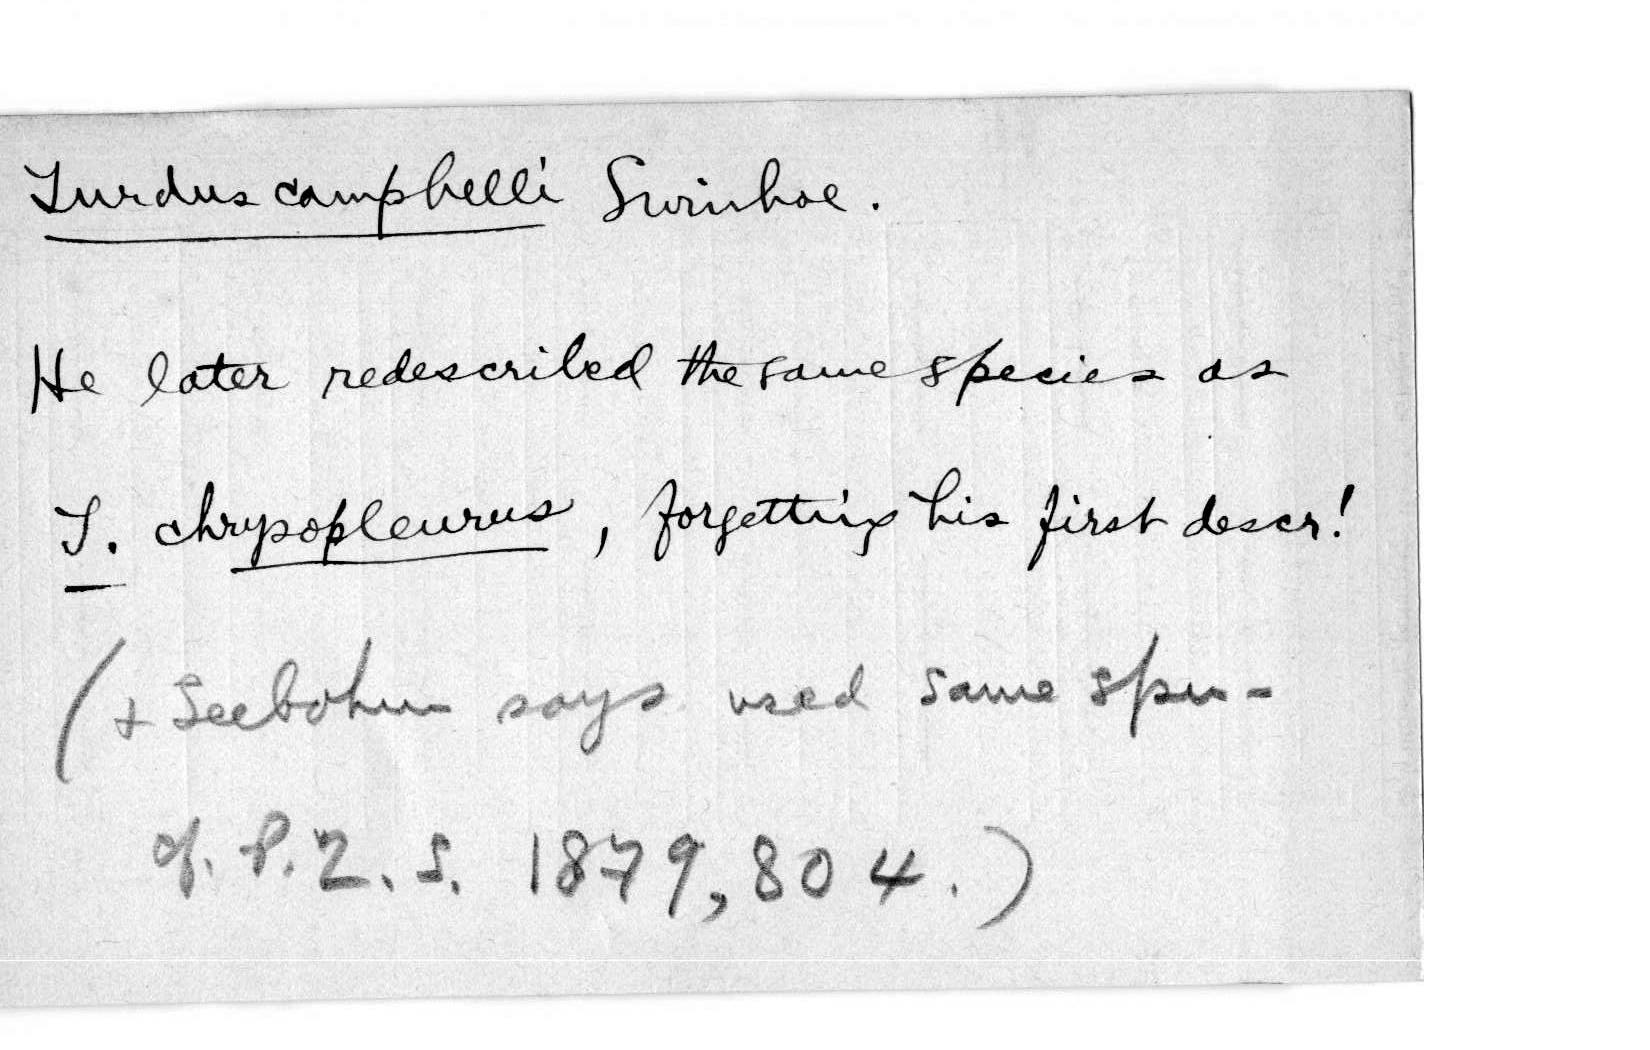 Turdus camphelli Swinhoe.
He later redescribed the same species as
T. chrysopleurus, forgetting his first descr!
(+ Seebohm says used same spn-
cf. P.Z.S. 1879, 804.)